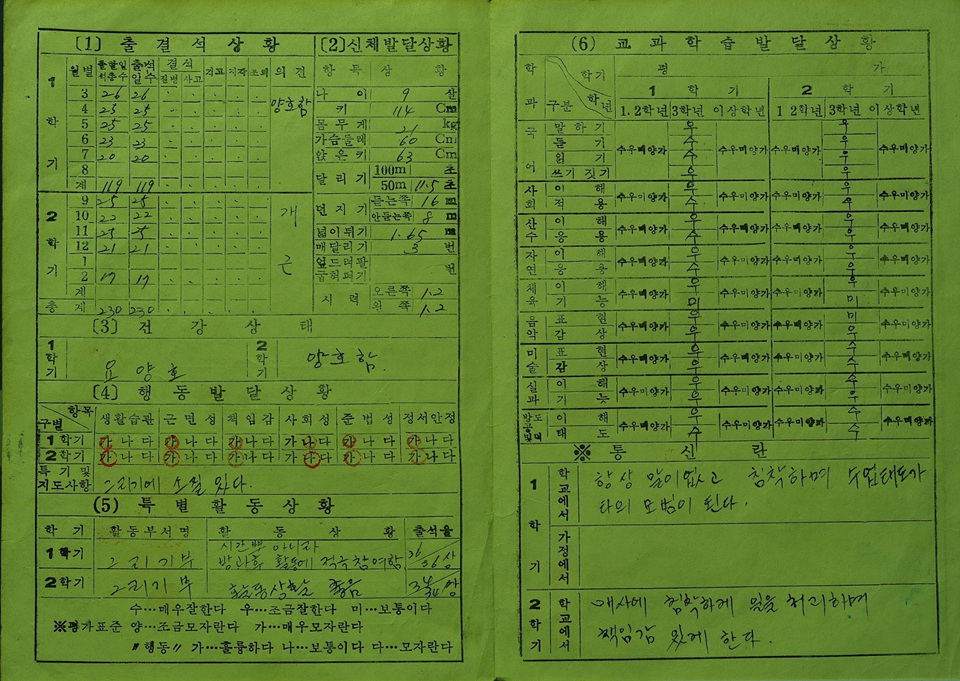 [1] 출결석상황
월별 출할일석총수 출석일수 결석 질병 사고 의견
1학기
3 26 26 양호함
4 25 25
5 25 25
6 23 23
7 20 20
8
계 119 119
2학기
9 25 25 개근
10 22 22
11 25 25
12 21 21
1
2 17 17
계
총계 230 230
[2] 신체발달상황
항목 상황
나이 9 살
키 114 Cm
몸무게 21 kg
가슴둘레 60 Cm
앉은키 63 Cm
달리기 100m 초
50m 11.5 초
던지기 든는쪽 16 m
안든는쪽 8 m
넓이뛰기 1.65 m
매달리기 3 번
엎드려팔굽혀펴기 번
시력 오른쪽 1.2
왼쪽 1.2
[3] 건강상태
1학기 요양호
2학기 양호함
[4] 행동발달상황
구별 항목 생활습관 근면성 책임감 사회성 준법성 정서안정
1학기 가나다 가나다 가나다 가나다 가나다 가나다
2학기 가나다 가나다 가나다 가나다 가나다 가나다
특기 및 지도사항 그리기에 소질 있다.
(5) 특별활동상황
학기 활동부서명 활동상황 출석율
1학기 그리기부 시간뿐 아니라
방과후 활동에 적극참여함 36/36 상
2학기 그리기부 활동상황 좋음
수…매우잘한다 우…조금잘한다 미…보통이다
※평가표준 양…조금모자란다 가…매우모자란다
〃행동〃 가…훌륭하다 나…보통이다 다…모자란다
(6) 교과학습발달상황
학과 학기 구분 학년 평가
1학기 2학기
1.2학년 3학년 이상학년 1 2학년 3학년 이상학년
국어 말하기 우 우
듣기 수 우
읽기 우 우
쓰기 짓기 우 우
수우미양가 수우미양가 수우미양가 수우미양가
사회 이해 적용 수우미양가 수우미양가 수우미양가 수우미양가
산수 이해 응용 수우미양가 수우미양가 수우미양가 수우미양가
자연 이해 응용 수우미양가 수우미양가 수우미양가 수우미양가
체육 이해 기능 수우미양가 수우미양가 수우미양가 수우미양가
음악 표현 감상 수우미양가 수우미양가 수우미양가 수우미양가
미술 표현 감상 수우미양가 수우미양가 수우미양가 수우미양가
실과 이해 기능 수우미양가 수우미양가 수우미양가 수우미양가
이해 태도 수우미양가 수우미양가 수우미양가 수우미양가
※통신란
1학기 학교에서 항상 말이없고 침착하며 수업태도가
타의 모범이 된다.
가정에서
2학기 학교에서 매사에 침착하게 일을 처리하며
책임감 있게 한다.